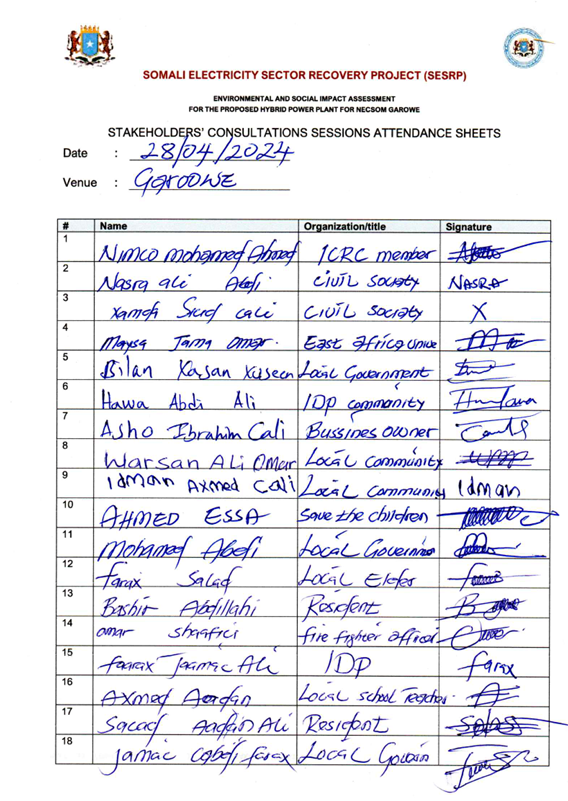 SOMALI ELECTRICITY SECTOR RECOVERY PROJECT (SESRP)
ENVIRONMENTAL AND SOCIAL IMPACT ASSESSMENT
FOR THE PROPOSED HYBRID POWER PLANT FOR NECSOM GAROWE
STAKEHOLDERS' CONSULTATIONS SESSIONS ATTENDANCE SHEETS
Date : 28/04/2024
Venue : GAROOWE
# Name Organization/title Signature
1 Nimco mohamed Ahmed ICRC member
2 Nasra ali Abdi CIVIL Society NASRA
3 Xamdi Siud cali CIVIL Society X
4 Maysa Jama omar. East africa unive
5 Bilan Xasan Xuseen Local Government
6 Hawa Abdi Ali IDP community
7 Asho Ibrahim Cali Bussines owner
8 Warsan Ali Omar Local Community
9 Idman Axmed Cali Local Community Idman
10 AHMED ESSA Save the children
11 Mohamed Abdi Local
12 farax Salad Local Elder
13 Bashir Abdillahi Resident
14 omar shaafici fire fighter
15 faarax Jaamac Ali IDP farax
16 Axmed Local school Teacher.
17 Sacad Ali Resident
18 Jamac farax Local